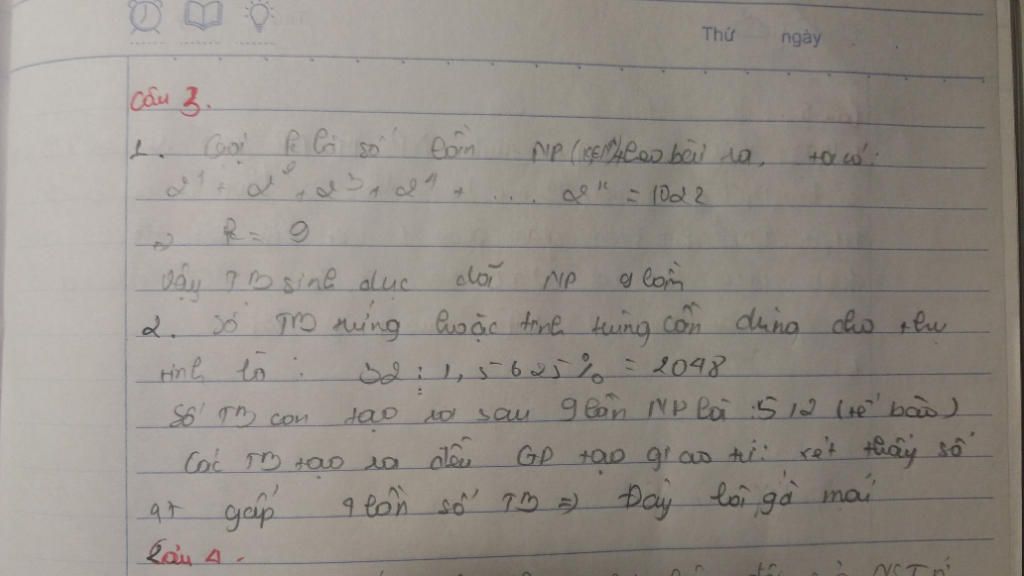 Thứ ngày
Câu 3.
1. Gọi k là số lần NP (k∈N*) theo bài ra, ta có:
2¹ + 2² + 2³ + 2⁴ + .... 2ᵏ = 1022
=> k = 9
Vậy TB sinh dục đã NP 9 lần
2. Số TB trứng hoặc tinh trùng cần dùng cho thụ
tinh là : 32 : 1,5625% = 2048
Số TB con tạo ra sau 9 lần NP là : 512 (tế bào)
Các TB tạo ra đều GP tạo giao tử: xét thấy số
gt gấp 4 lần số TB => Đây là gà
Câu 4.